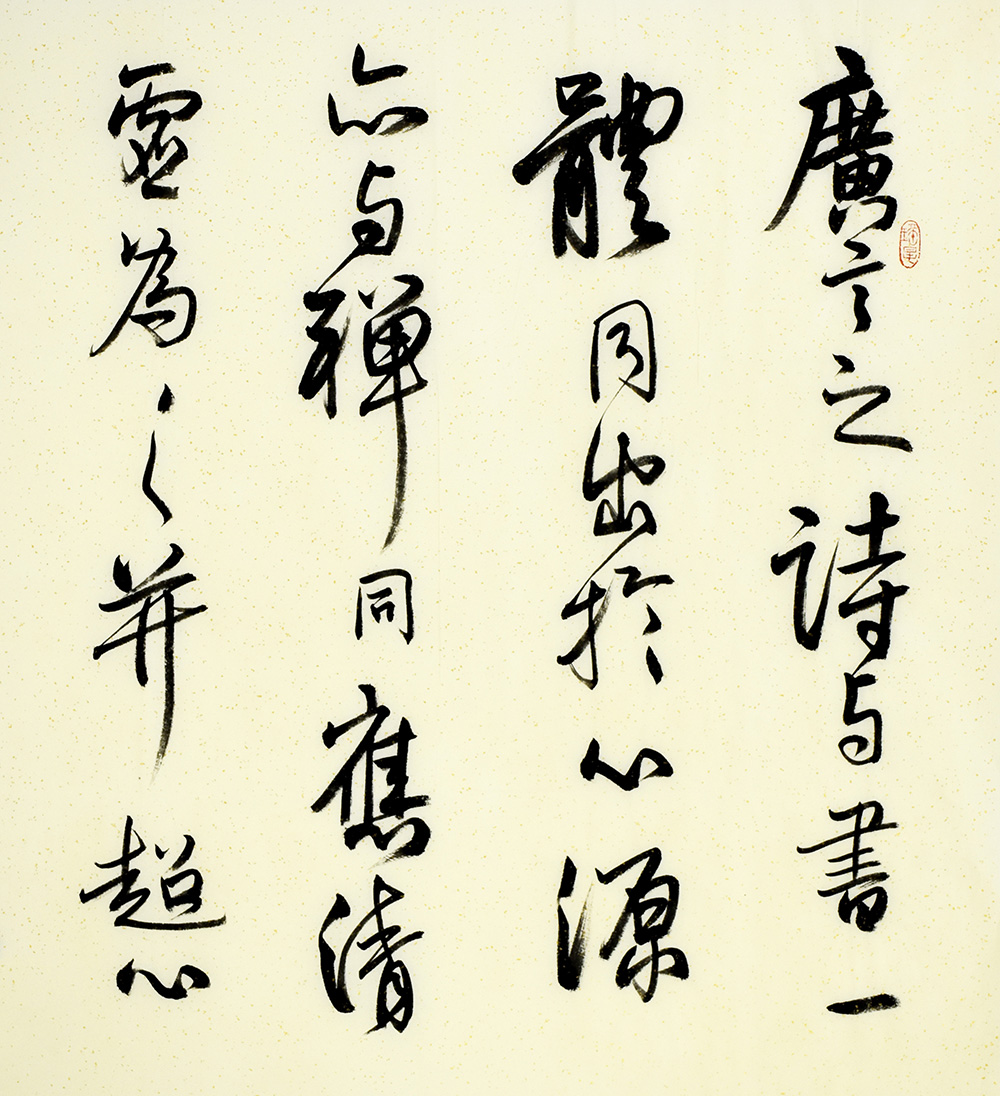 廣言之詩与書一
體同出於心源
亦与禪同應清
靈為之并超心